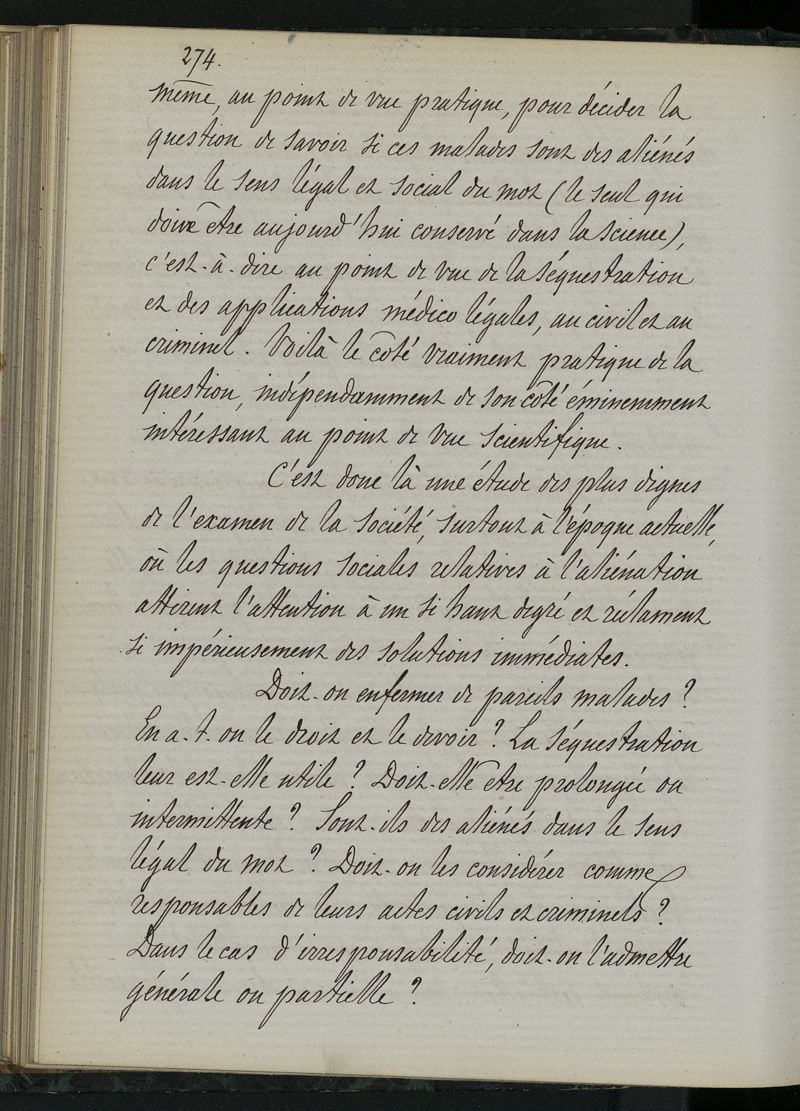 274.
même, au point de vue pratique, pour décider la
question de savoir si ces malades sont des aliénés
dans le sens légal et social du mot (le seul qui
doive être aujourd'hui conservé dans la science),
c'est-à-dire au point de vue de la séquestration
et des applications médico légales, au civil et au
criminel. Voilà le côté vraiment pratique de la
question, indépendamment de son côté éminemment
intéressant au point de vue scientifique.
C'est donc là une étude des plus dignes
de l'examen de la société, surtout à l'époque actuelle,
où les questions sociales relatives à l'aliénation
attirent l'attention à un si haut degré et réclament
si impérieusement des solutions immédiates.
Doit-on enfermer de pareils malades ?
En a-t-on le droit et le devoir ? La séquestration
leur est-elle utile ? Doit-elle être prolongée ou
intermittente ? Sont-ils des aliénés dans le sens
légal du mot ? Doit-on les considérer comme
responsables de leurs actes civils et criminels ?
Dans le cas d'irresponsabilité, doit-on l'admettre
générale ou partielle ?